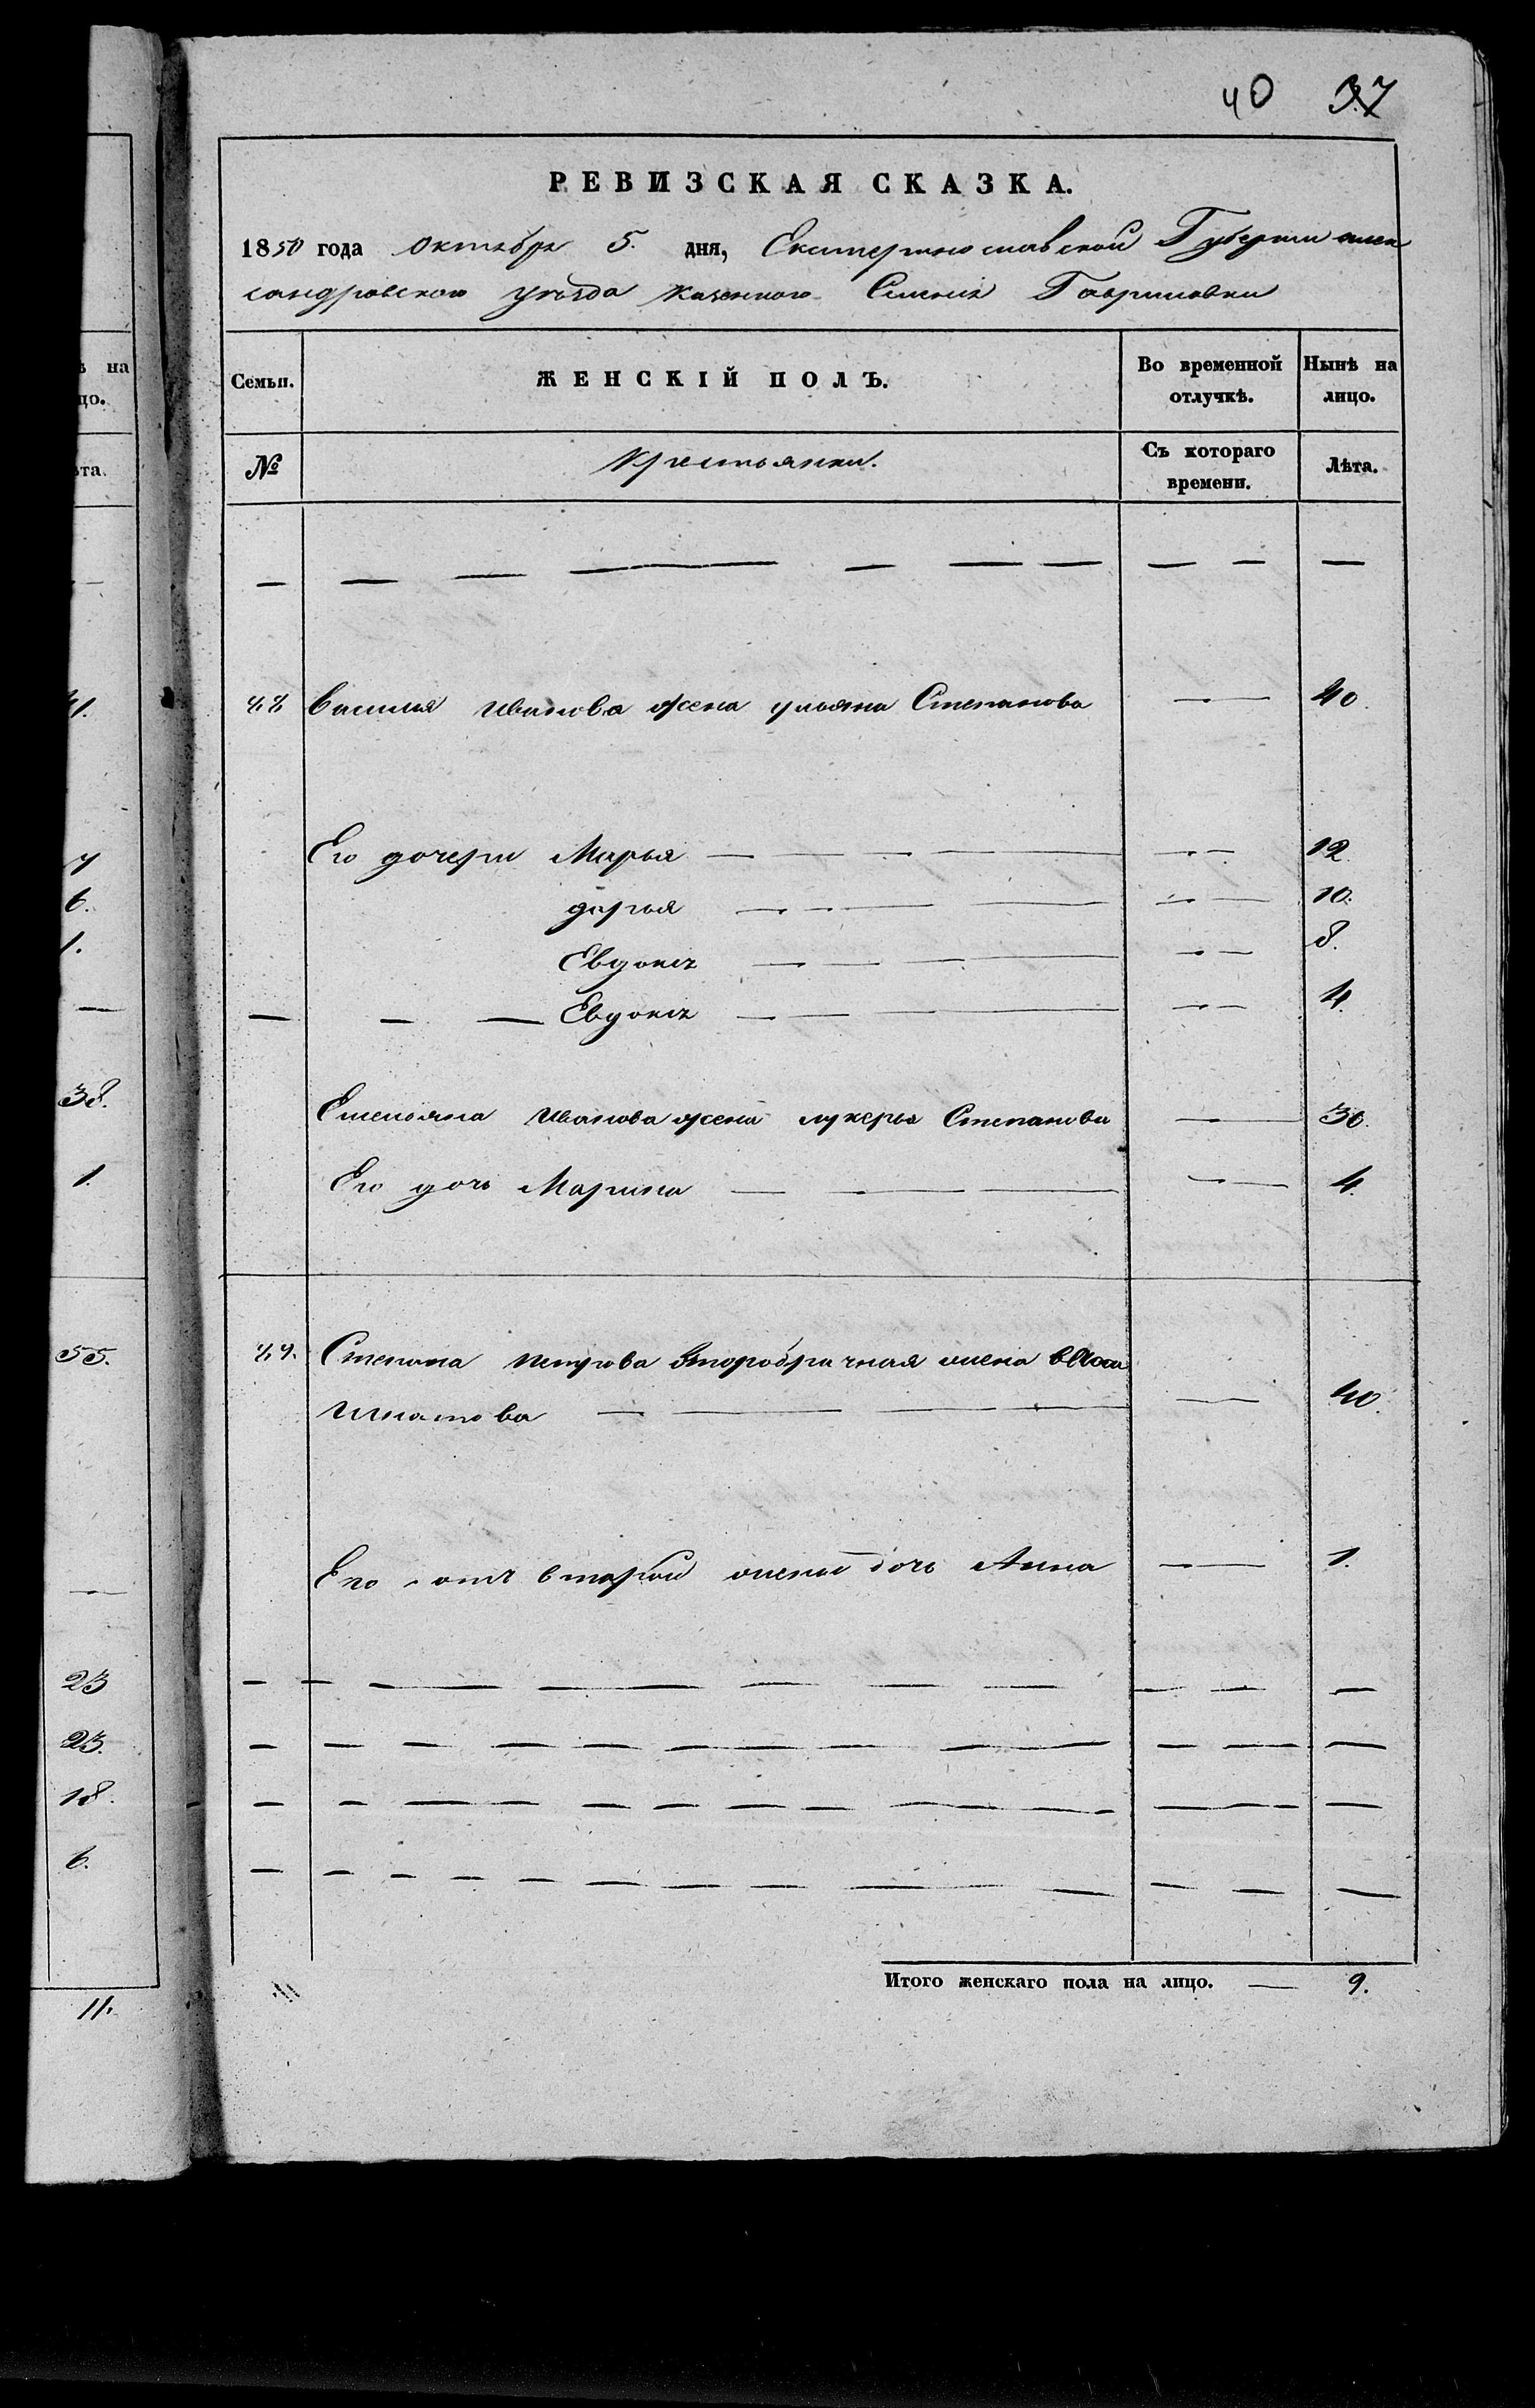 40 37
РЕВИЗСКАЯ СКАЗКА.
1850 года октября 5. дня, Екатеринославской Губернии алек
сандровского уезда казенного Селения Гавриловки
Семьи. ЖЕНСКІЙ ПОЛЪ. Во временной отлучкѣ. Нынѣ на лицо.
№ Крестьянки. Съ котораго времени. Лѣта.
Василия Иванова жена ульяна Степанова 40.
Его дочери Марья 12.
дарья 10.
Евдокия 8.
Евдокия 4.
Емельяна Иванова жена лукерья Степанова 30.
Его дочь Марина 4.
Степана петрова второбрачная жена
Игнатова 40.
Его отъ второй жены дочь Анна 1.
Итого женскаго пола на лицо. 9.
ѣ на
цо.
ѣта.
6.
1.
38.
1.
55.
23
23.
18.
6.
11.